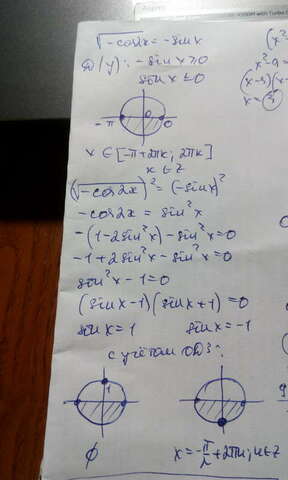 √-cos2x = -sinx
D(y): -sinx ≥ 0
sinx ≤ 0
-π 0 0
x ∈ [-π+2πk; 2πk]
k ∈ Z
(√-cos2x)² = (-sinx)²
-cos2x = sin²x
-(1-2sin²x)-sin²x=0
-1+2sin²x-sin²x=0
sin²x-1=0
(sinx-1)(sinx+1)=0
sinx=1 sinx=-1
с учётом ОДЗ:
1
∅ x=-π/2+2πn; n∈Z